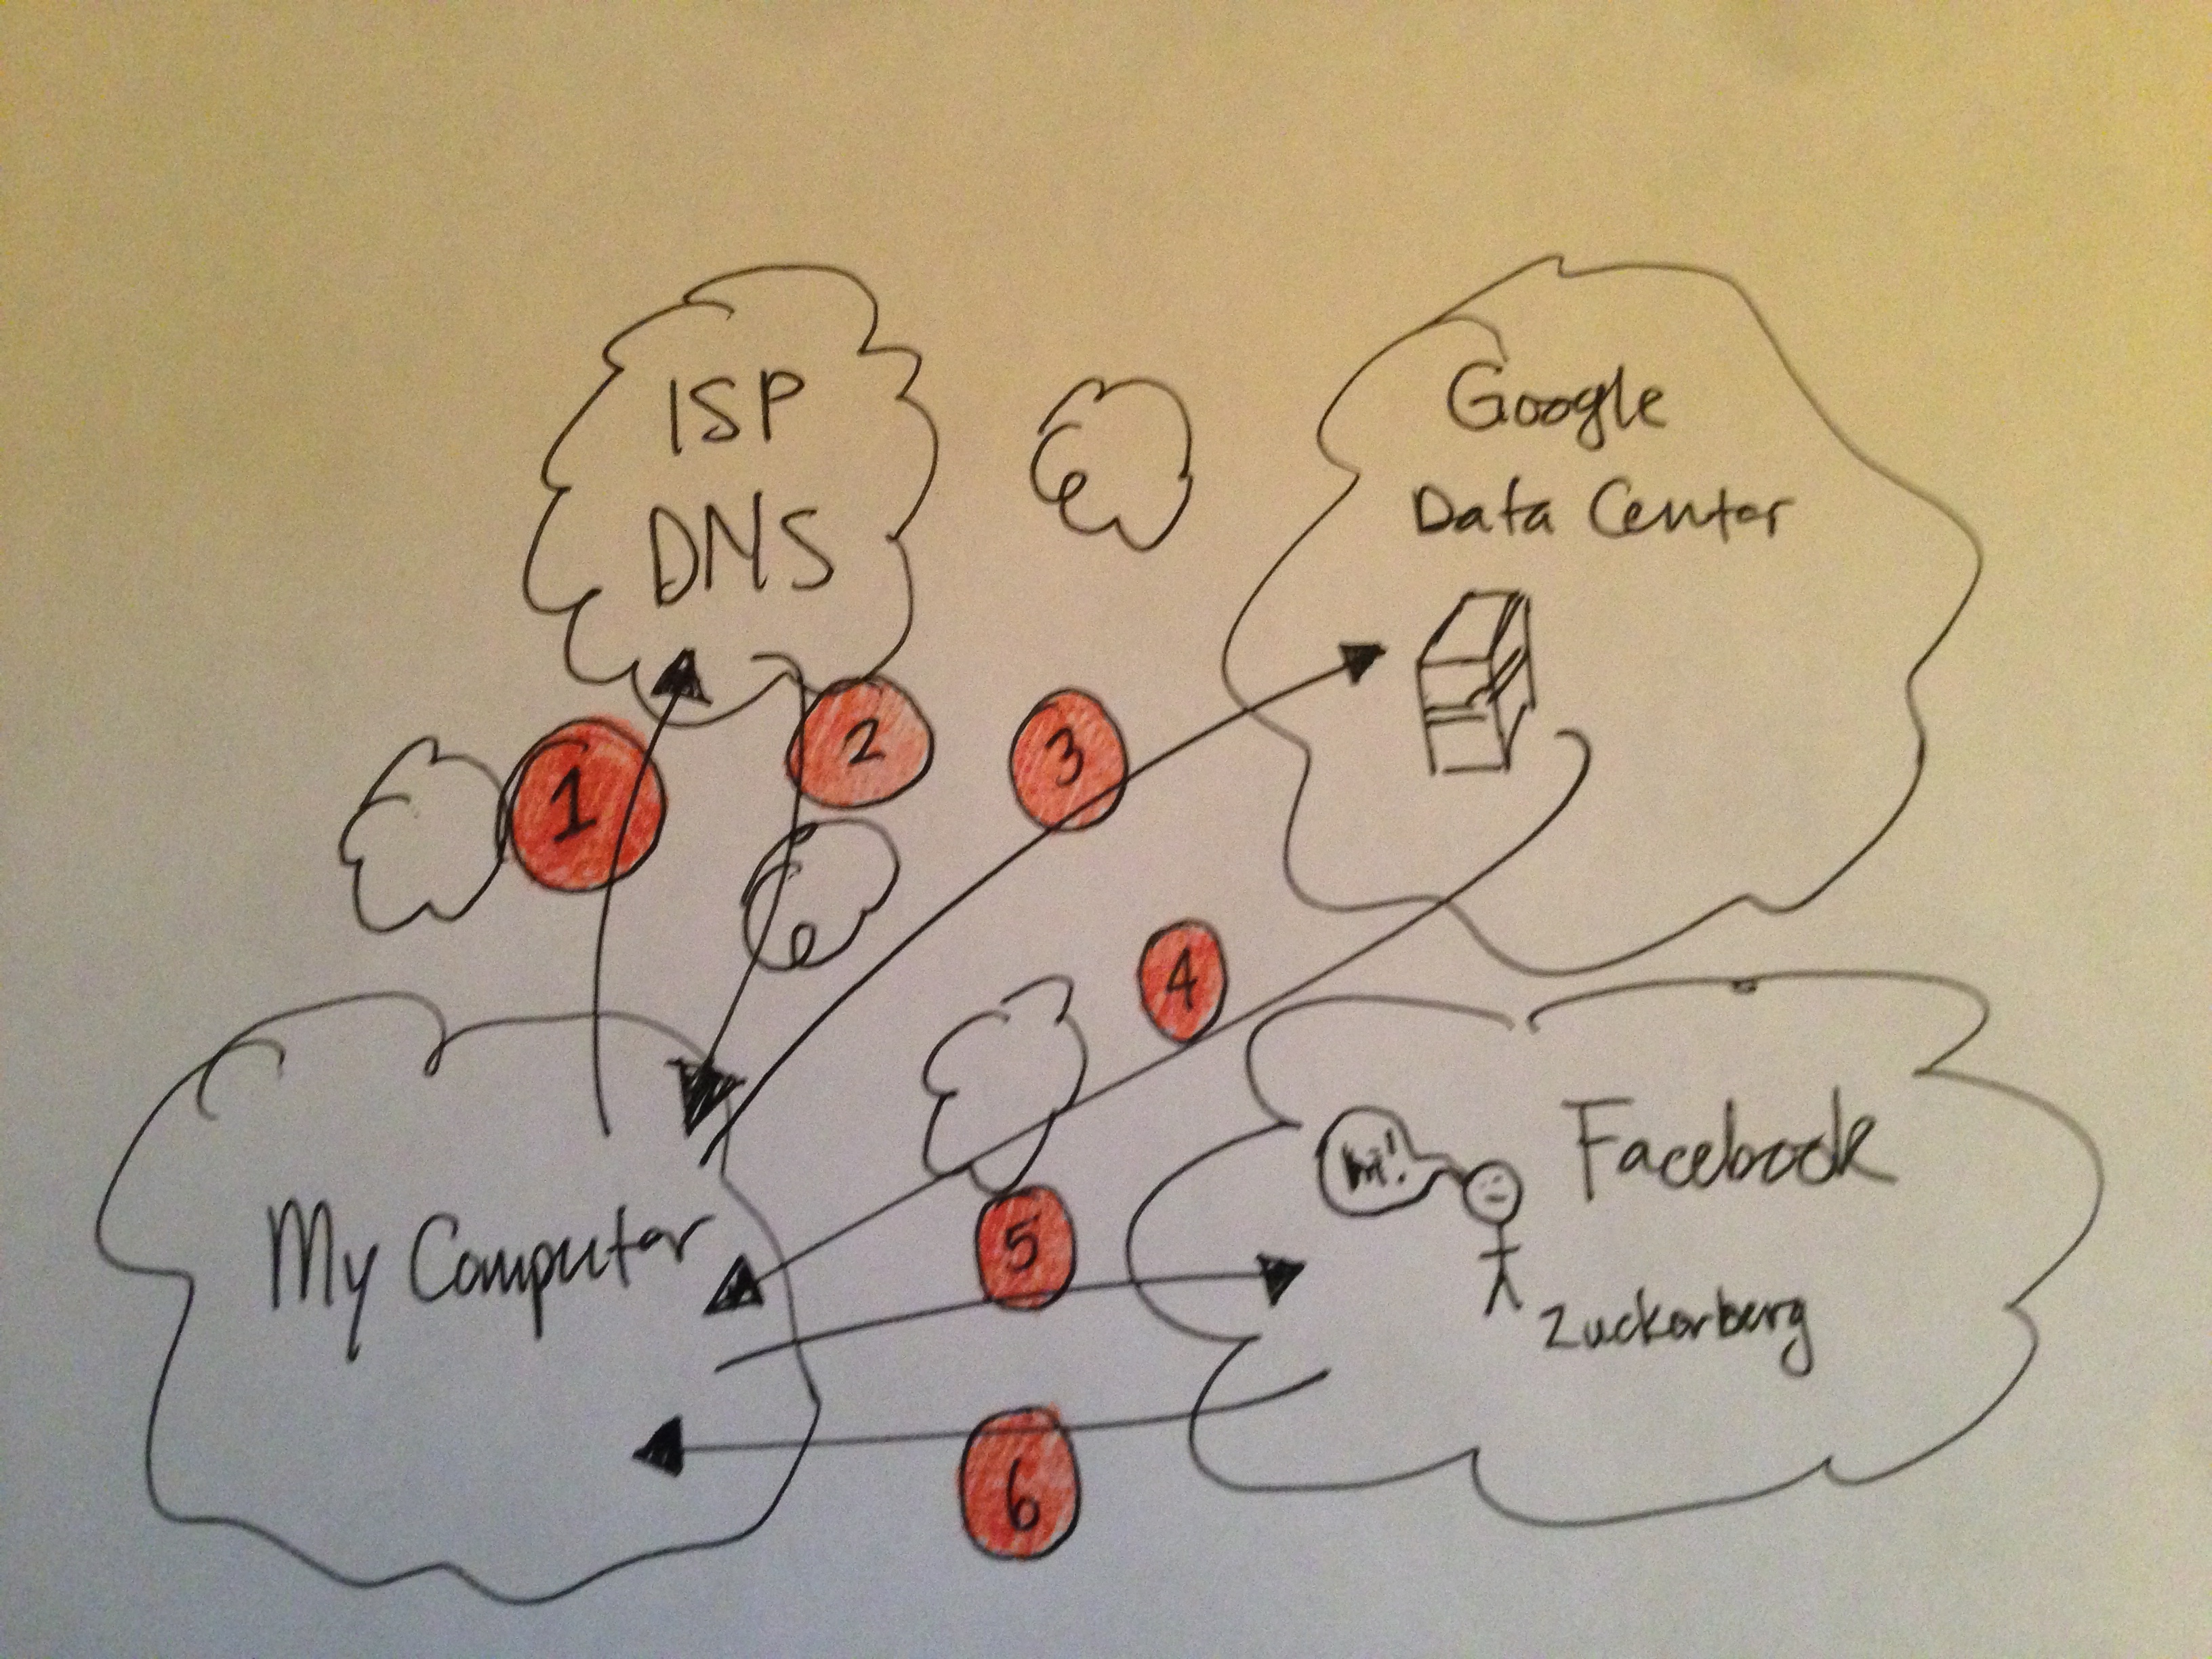 ISP
DNS
Google
Data Center
1
2
3
4
My Computer
5
hi!
Facebook
Zuckerberg
6